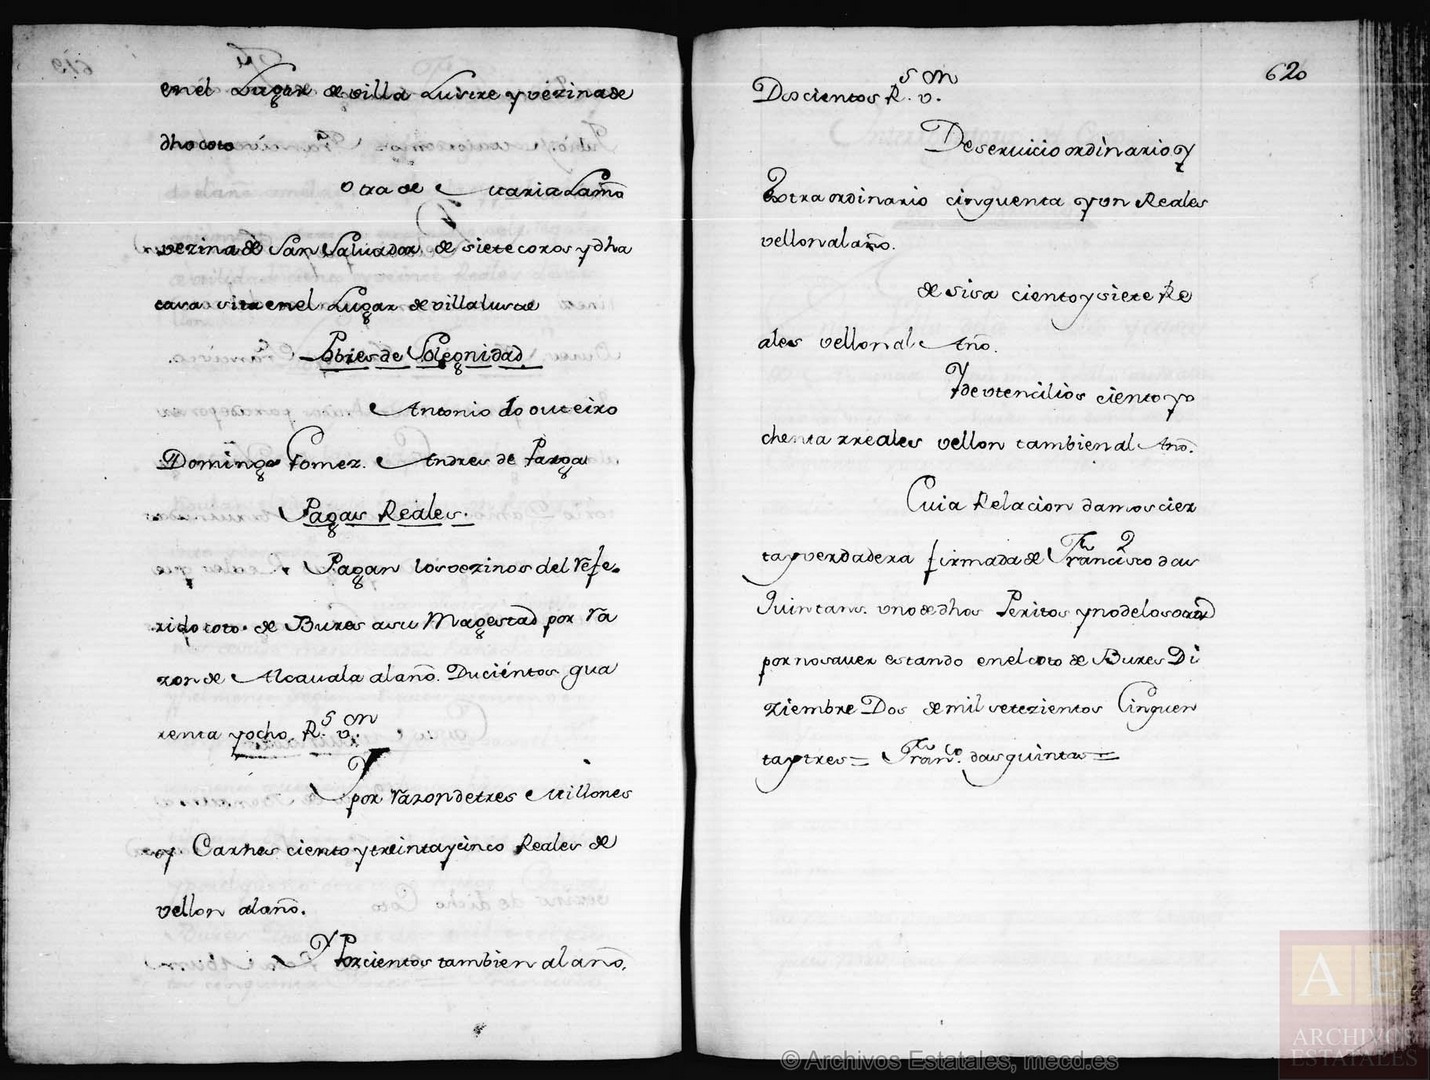 en el Lugar de villa Lustre y vezina de
dho coto
Otra de Maria Lamo
vezina de San Salvador de siete coros y dha
casa sita en el Lugar de villalustre
Pobres de Solegnidad
Antonio do outeiro
Domingo Gomez. Andres de Parga
Pagas Reales.
Pagan los vezinos del refe-
rido coto de Bures a su Magestad por ra
zon de Alcavala al año. Ducientos qua
renta y ocho Rs. von.
Y por razon de tres Millones
y Carnes ciento y treinta y cinco Reales de
vellon al año.
Y Por cientos tambien al año.
620
Doscientos Rs. von.
De servicio ordinario y
Extraordinario cinquenta y un Reales
vellon al año.
de sisa ciento y siete Re
ales vellon al Año.
Y de utencilios ciento y o
chenta rreales vellon tambien al Año.
Cuia Relacion damos cier
ta y verdadera firmada de Francisco das
Quintans. uno de dhos Peritos y no de los
por no saver estando en el coto de Bures Di
ziembre Dos de mil setezientos Cinquen
ta y tres = Franco. das quintas =
© Archivos Estatales, mecd.es
AE
ARCHIVOS
ESTATALES